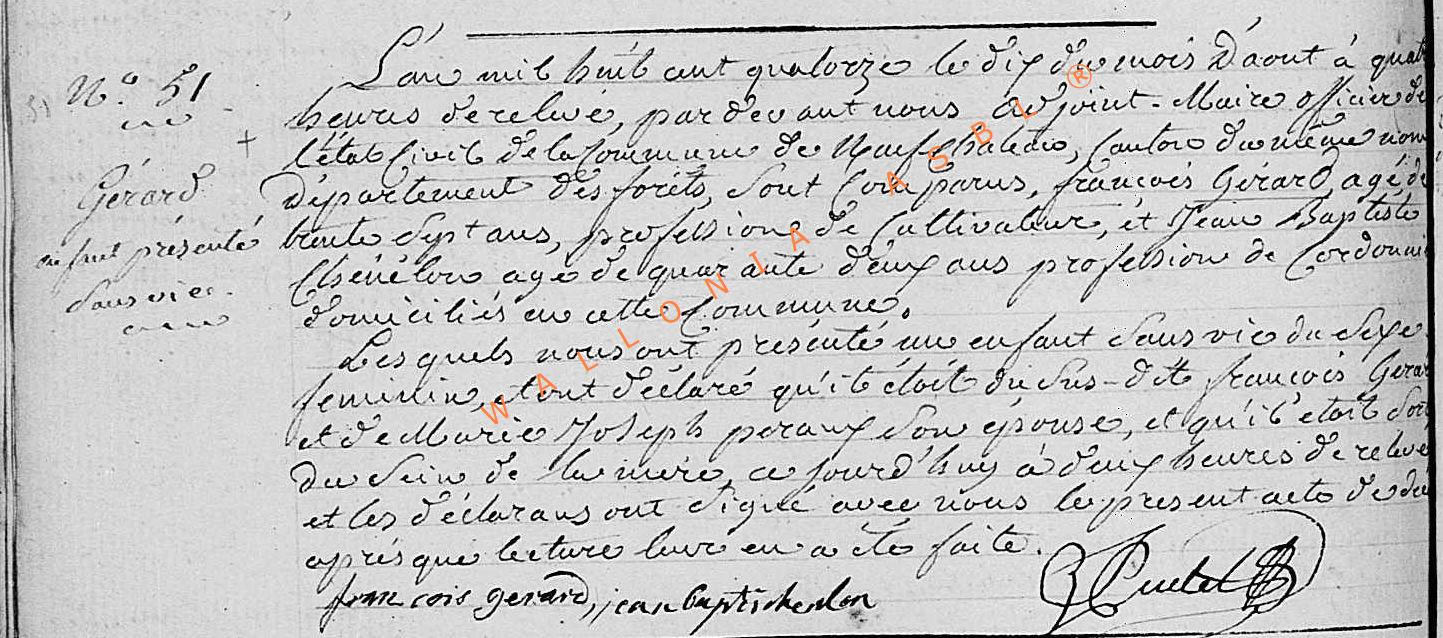 N.o 51
Gérard
enfant présenté
sans vie.
L'an mil huit cent quatorze le dix du mois d'aout à quatre
heures de relevé, pardevant nous adjoint-Maire officier de
l'état Civil de la Commune de Neufchateau, Canton du même nom
Département des forêts, sont Comparus, françois Gérard, agé de
trente sept ans, profession de Cultivateur, et Jean Baptiste
Chénélon agé de quarante deux ans profession de Cordonnier
domiciliés en cette Commune.
Lesquels nous ont présenté un enfant sans vie du sexe
feminin, et ont déclaré qu'il étoit du sus-dit françois Gérard
et de Marie Joseph peraux son épouse, et qu'il étoit sorti
du sein de la mère, ce jourd'huy à deux heures de relevé
et les déclarans ont signé avec nous le present acte de décès
après que lecture leur en a été faite.
francois gerard, jean baptis chenlon
WALLONIA ASBL ®